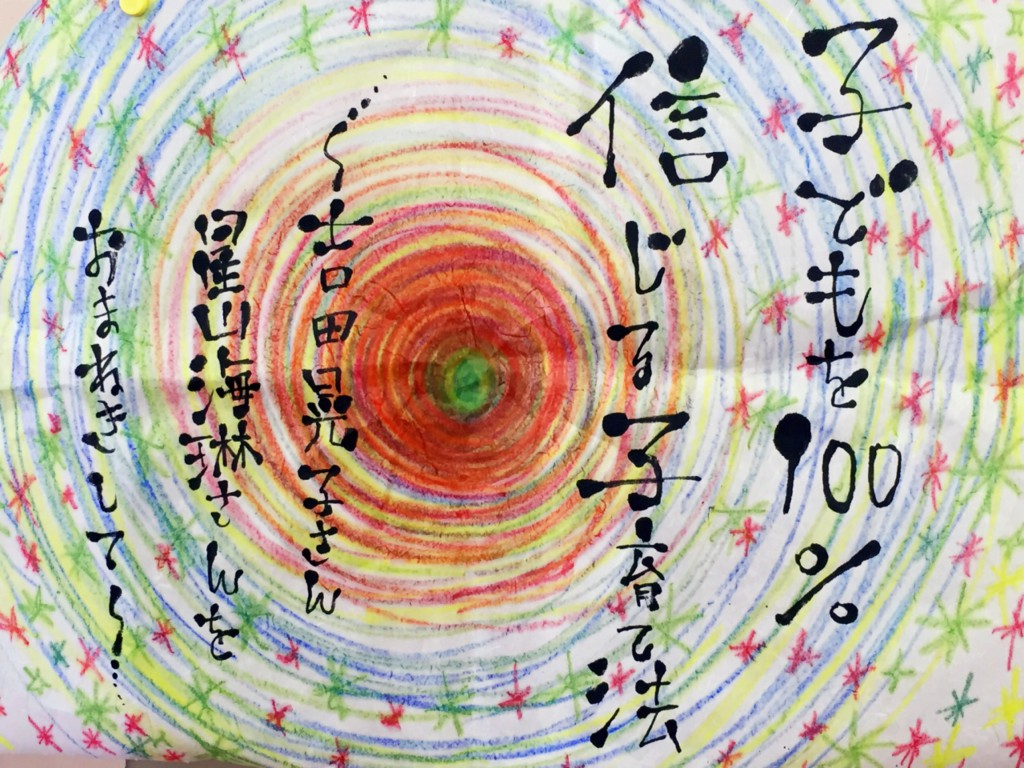 子どもを100%
信じる子育て法
〜吉田晃子さん
星山海琳さんを
おまねきして〜